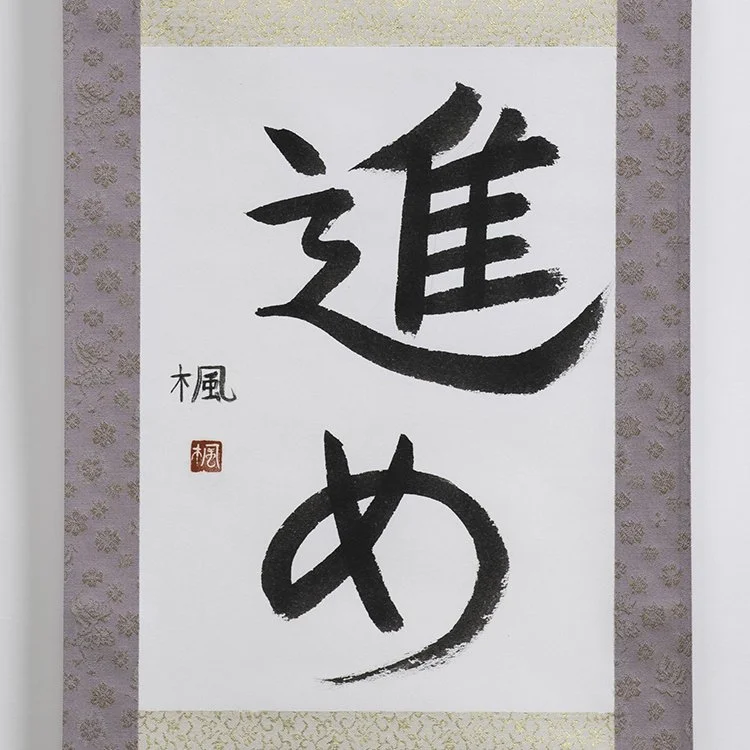 進め
楓
楓